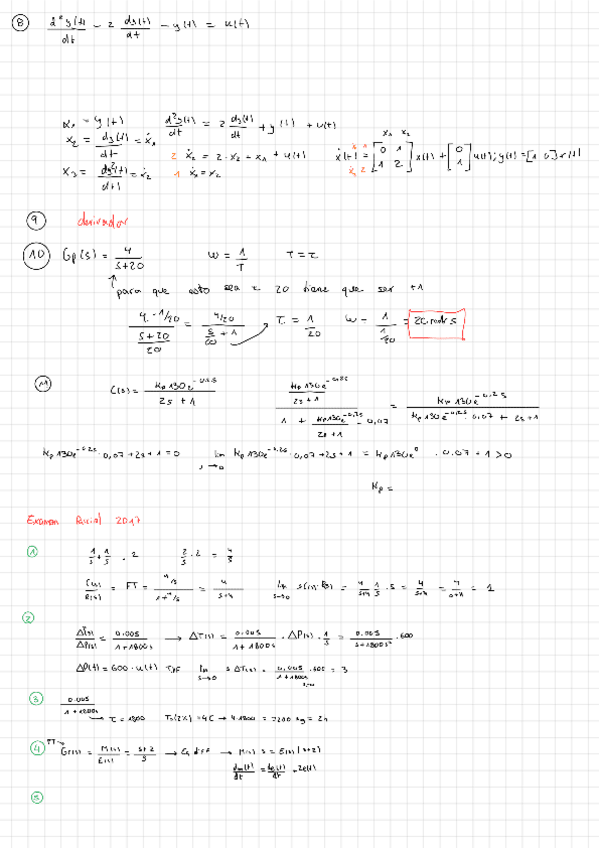 8 d²y(t)/dt - 2 dy(t)/dt - y(t) = u(t)
x₁ = y(t) d²y(t)/dt = 2 dy(t)/dt + y(t) + u(t)
x₂ = dy(t)/dt = ẋ₁ 2 ẋ₂ = 2·x₂ + x₁ + u(t) ẋ(t) = [0 1; 1 2] x(t) + [0; 1] u(t); y(t) = [1 0] x(t)
x₃ = dy²(t)/dt = ẋ₂ 1 ẋ₁ = x₂
9 derivador
10 Gp(s) = 4/(s+20) ω = 1/T T = τ
para que esto sea τ 20 tiene que ser +1
(4·1/20)/((s+20)/20) = (4/20)/(s/20 + 1) τ = 1/20 ω = 1/(1/20) = 20 rad/s
11 C(s) = Kp 130e^(-0.2s)/(2s+1) (Kp 130e^(-0.2s)/(2s+1))/(1 + Kp 130e^(-0.2s)/(2s+1) · 0,07) = Kp 130e^(-0.2s)/(Kp 130e^(-0.2s) · 0,07 + 2s+1)
Kp 130e^(-0.2s) · 0,07 + 2s + 1 = 0 lim s→0 Kp 130e^(-0.2s) · 0,07 + 2s + 1 = Kp 130e⁰ · 0,07 + 1 > 0
Kp =
Examen Parcial 2017
1 1/s + 1/s · 2 2/s · 2 = 4/s
C(s)/R(s) = FT = (4/s)/(1+4/s) = 4/(s+4) lim s→0 = 4/(s+4) 1/s · s = 4/(s+4) = 4/(0+4) = 1
2
ΔT(s)/ΔP(s) = 0.005/(1+1800s) → ΔT(s) = 0.005/(1+1800s) · ΔP(s) · 1/s = 0.005/(s+1800s²) · 600
ΔP(t) = 600 · u(t) TVF lim s→0 s ΔT(s) = 0.005/(1+1800s) · 600 = 3
3 0.005/(1+1800s)
→ τ = 1800 Ts(2%) = 4τ → 4·1800 = 7200 sg = 2h
4 FT Gr(s) = M(s)/E(s) = (s+2)/s → Ec diff → M(s) s = E(s)(s+2)
dm(t)/dt = de(t)/dt + 2e(t)
5